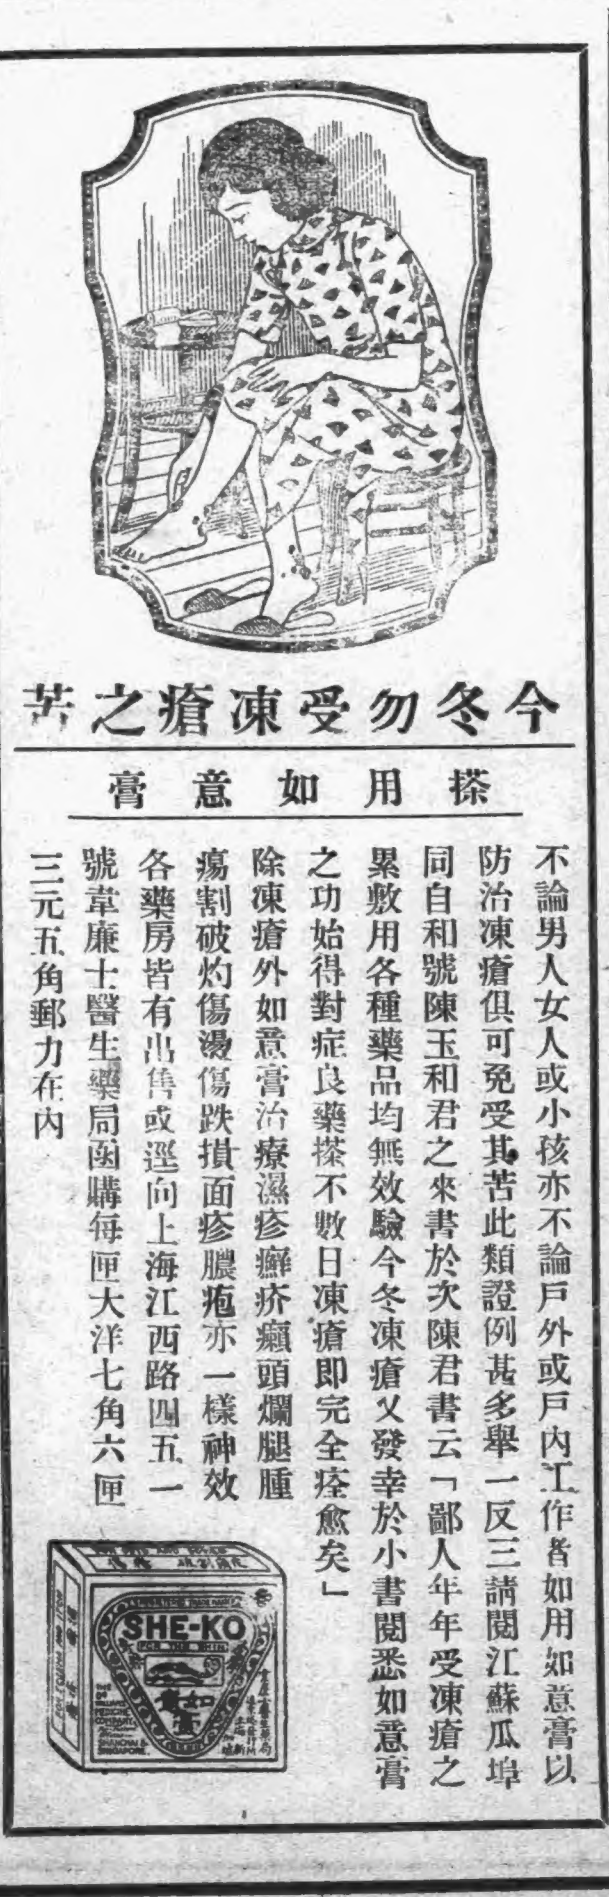 今冬勿受凍瘡之苦
搽用如意膏
不論男人女人或小孩亦不論戶外或戶內工作者如用如意膏以
防治凍瘡俱可免受其苦此類證例甚多舉一反三請閱江蘇瓜埠
同自和號陳玉和君之來書於次陳君書云「鄙人年年受凍瘡之
累敷用各種藥品均無效驗今冬凍瘡又發幸於小書閱悉如意膏
之功始得對症良藥搽不數日凍瘡即完全痊愈矣」
除凍瘡外如意膏治療濕疹癬疥癩頭爛腿腫
瘍割破灼傷燙傷跌損面疹膿疱亦一樣神效
各藥房皆有出售或逕向上海江西路四五一
號韋廉士醫生藥局函購每匣大洋七角六匣
三元五角郵力在內
SHE-KO
FOR THE SKIN
如意膏
THE
DR WILLIAMS
MEDICINE
COMPANY
SHANGHAI &
SINGAPORE